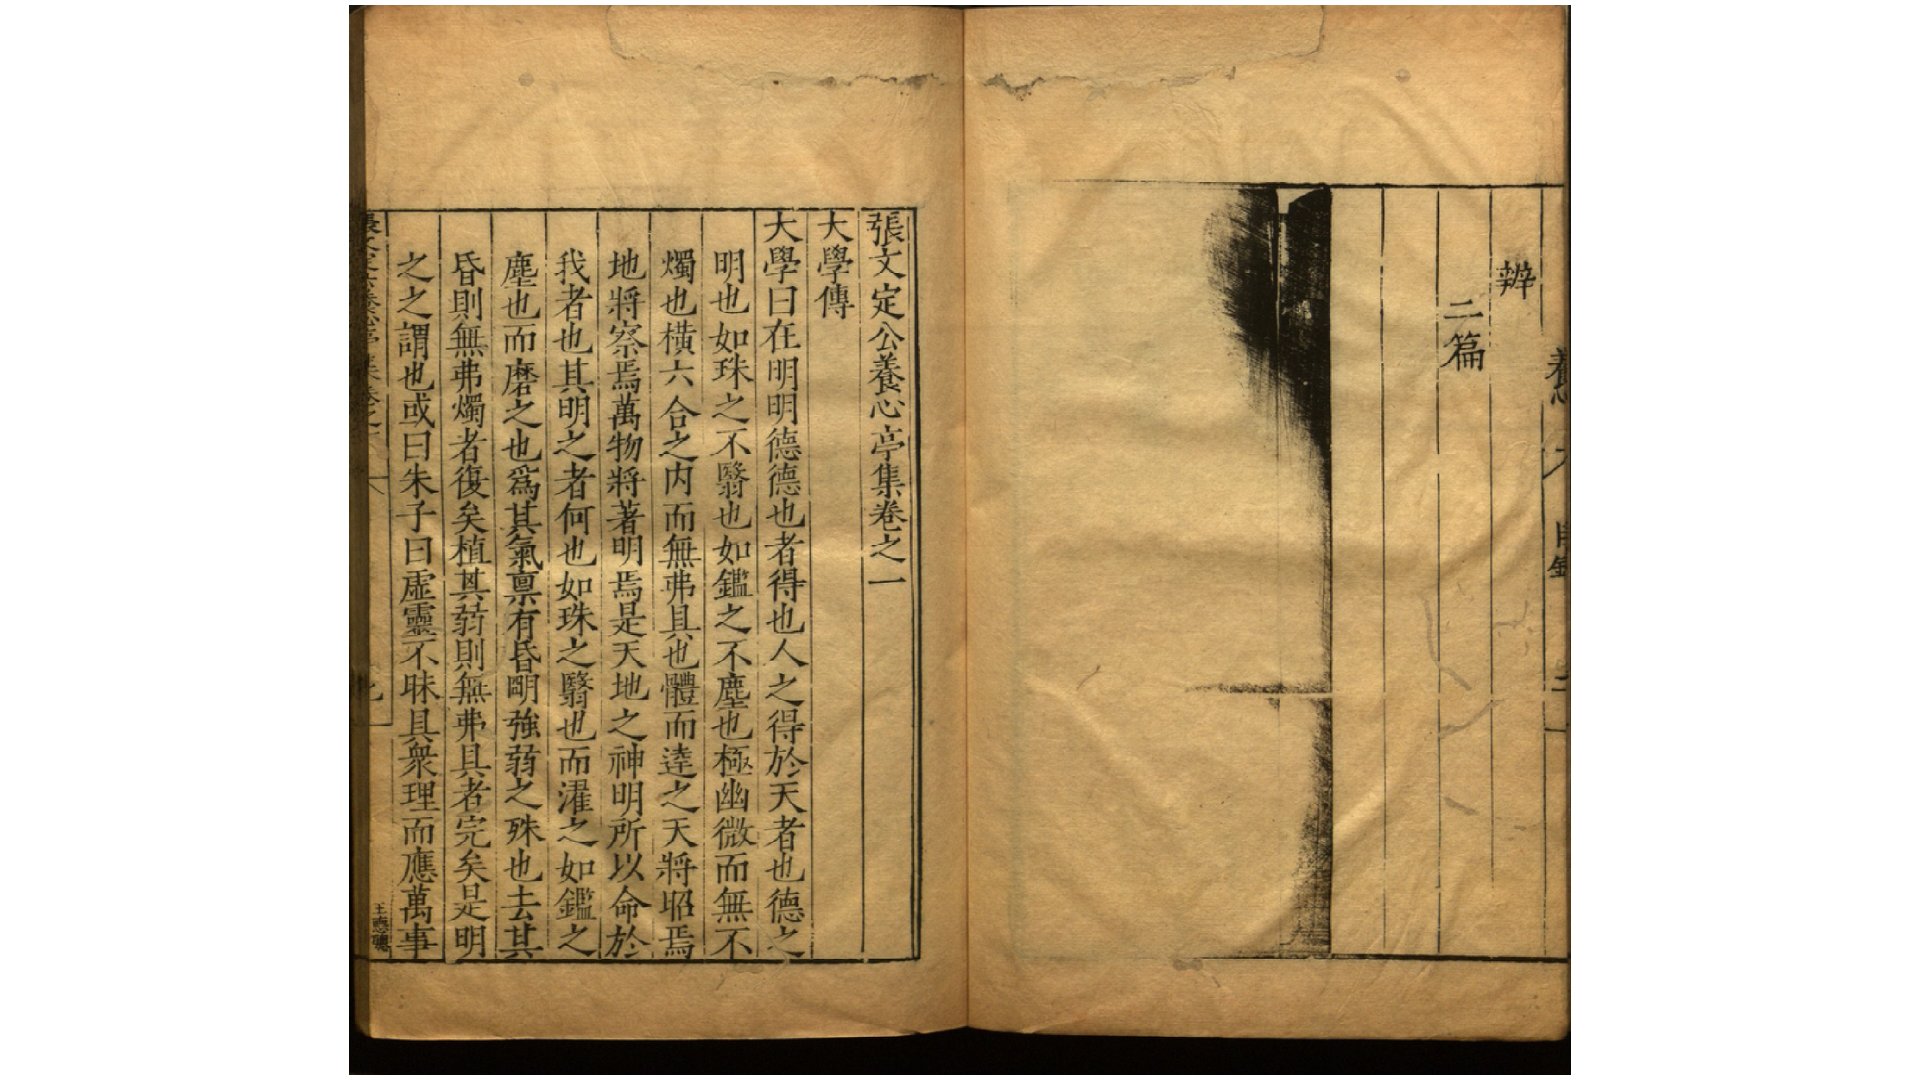 養心
辨
二篇
張文定公養心亭集卷之一
大學傳
大學曰在明明德德也者得也人之得於天者也德之
明也如珠之不翳也如鑑之不塵也極幽微而無不
燭也橫六合之内而無弗具也體而逹之天將昭焉
地將察焉萬物將著明焉是天地之神明所以命於
我者也其明之者何也如珠之翳也而濯之如鑑之
塵也而磨之也爲其氣禀有昏明強弱之殊也去其
昏則無弗燭者復矣植其弱則無弗具者完矣是明
之之謂也或曰朱子曰虛靈不昧具衆理而應萬事